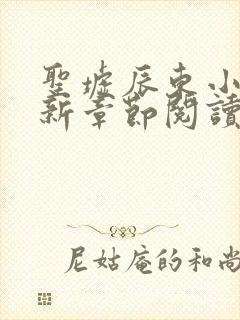 聖墟辰东小
新章節閱讀
尼姑庵的和尚